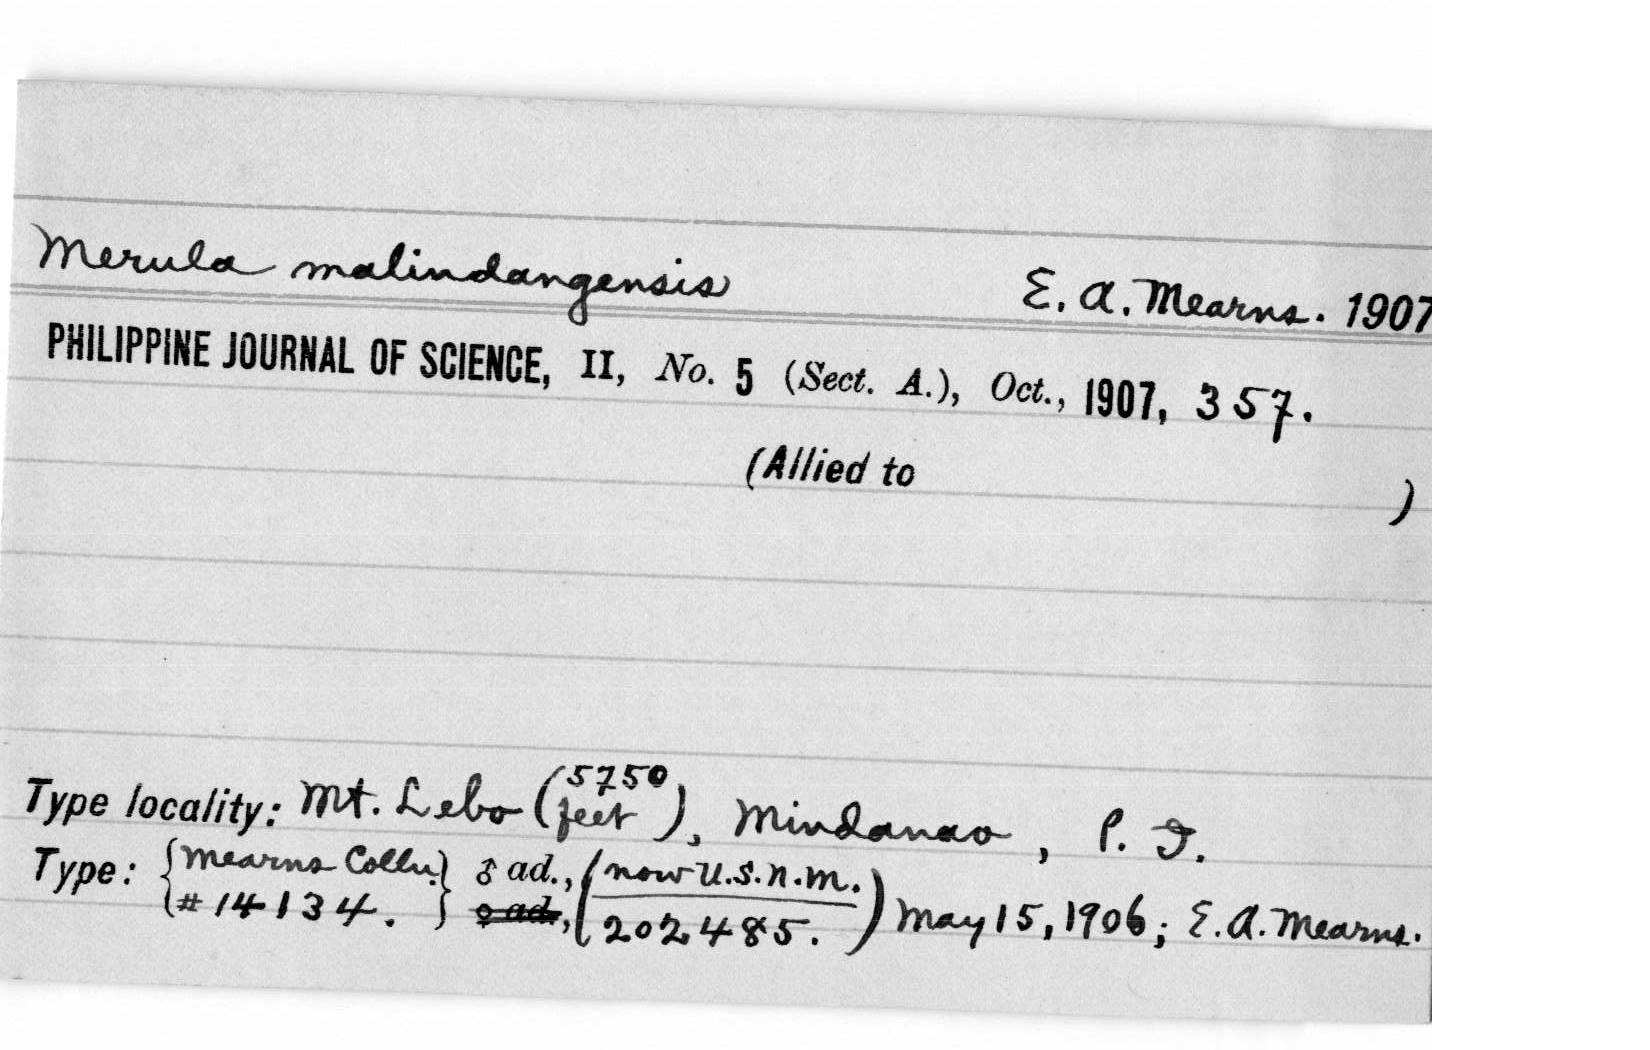 Merula malindangensis E. A. Mearns. 1907
PHILIPPINE JOURNAL OF SCIENCE, II, No. 5 (Sect. A.), Oct., 1907, 357.
(Allied to )
Type locality: Mt. Lebo (5750 feet), Mindanao, P. I.
Type: {Mearns Colln. #14134.} ♂ ad., ♀ ad., (now U.S.N.M. 202485.) May 15, 1906; E. A. Mearns.